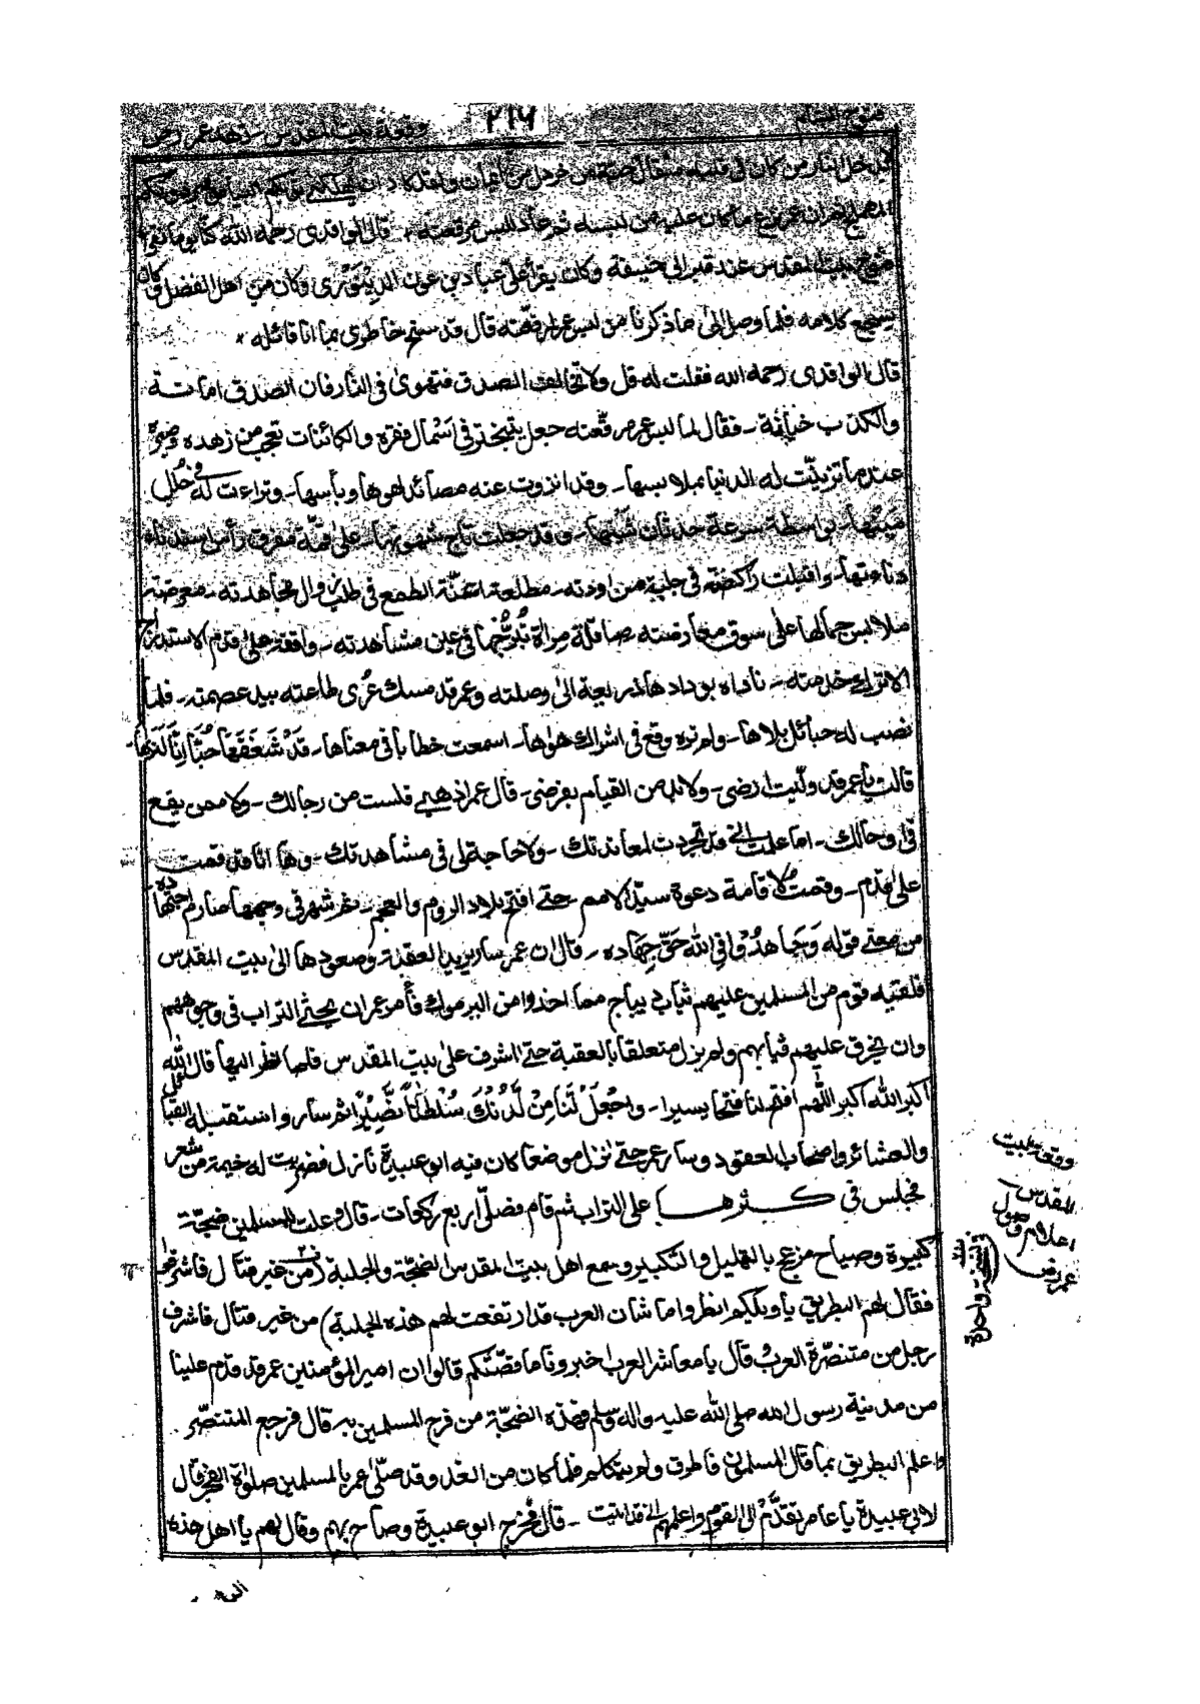 فتوح الشام ٢١٦ وقعة بيت المقدس زهد عمر رضی
يدخل النار من كان في قلبه مثقال حبة من خردل من ولقد كاد ان يهلكني
عمر نزع ما كان عليه من لبسه ثم عاد للبس مرقعته * قال الواقدى رحمه الله كنا يوما نقرأ
فتوح بيت المقدس عند قبر ابي حنيفة وكان يقرأ على عباد بن عون الدينورى وكان من اهل الفضل وكان
يسجع كلامه فلما وصل الى ما ذكرنا من لبس عمر مرقعته قال قد سنح خاطرى بما انا قائله *
قال الواقدى رحمه الله فقلت له قل ولا تخالف الصدق فتهوىٰ فى النار فان الصدق امانة
والكذب خيانة - فقال لما لبس عمر مرقّعته جعل يتبختر في اسمال فقره والكائنات تعجب من زهده وصبره
عندما تزينّت له الدنيا بملابسها - وقد انزوت عنه مصائد لهوها وبأسها - وتراءت له في حُلل
بواسطة سرعة حدثان - وقد جعلت تاج شهوتها - على قمّة مفرق رأس
دناءتها - واقبلت راكضة فى جلبة مراودته - مطلعة اعنّة الطمع فى طلب مجاهدته - معرضة
ملابس جمالها على سوق معارضته صاقلة مراة تبرّجها في عين مشاهدته - واقفة على قدم الاستدراج
خدمته - ناداه بودادها ذريعة الى وصلته وعمر قد مسك عُرى طاعته بيد عصمته - فلما
نصب له حبائل بلاها - ولم تره وقع فى اشراك هواها - اسمعت خطابا فى معناها - قَدْ شَغَفَهَا حُبًّا اِنَّا لَنَرٰهَا -
قالت يا عمر قد ولّيت ارضى - ولا بد من القيام بفرضى - قال عمر اذهبى فلست من رجالك - ولا ممن يقع
فى اوحالك - اما علمت انى قد تجردت لمعاندتك - ولا حاجة لى فى مشاهدتك - وها انا قد قمت
على قدم - وقمت لاقامة دعوة سيّد الامم - حتے افتح بلاد الروم والعجم - ثم شهر فى وجهها صارم اجتهاده
من معنے قوله وَجَاهِدُوْا فِي اللّٰهِ حَقَّ جِهَادِه - قال ان عمر سار يريد العقبة وصعودها الى بيت المقدس
فلقيه قوم من المسلمين عليهم ثياب ديباج مما اخذوا من اليرموك فأمر عمر ان يحثے التراب فى وجوههم
وان يخرق عليهم ثيابهم ولم يزل متعلقا بالعقبة حتے اشرف على بيت المقدس فلما نظر اليها قال الله
اكبر الله اكبر اللّٰهم افتح لنا فتحا يسيرا - وَاجْعَلْ لَّنَا مِنْ لَّدُنْكَ سُلْطٰنًا نَّصِيْرًا ثم سار واستقبله القبائل
والعشائر واصحاب العقود وسار عمر حتے نزل موضعا كان فيه ابو عبيدة نازل فضربت له خيمة من شعر
فجلس في كسرها على التراب ثم قام فصلّى اربع ركعات - قال وعلت للمسلمين ضجّة
كبيرة وصياح مزعج بالتهليل والتكبير وسمع اهل بيت المقدس الضجّة والجلبة من غير قتال فاشرف
فقال لهم البطريق يا ويلكم انظروا ما شان العرب قد ارتفعت لهم هذه الجلبة من غير قتال فاشرف
رجل من متنصّرة العرب قال يا معاشر العرب خبرونا ما قصّتكم قالوا ان امير المؤمنين عمر قد قدم علينا
من مدينة رسول الله صلى الله عليه واله وسلم فهذه الضجّة من فرح المسلمين به قال فرجع المتنصّر
واعلم البطريق بما قال المسلمون فاطرق ولم يتكلم فلما كان من الغد وقد صلّى عمر بالمسلمين صلوٰة الفجر قال
لابي عبيدة يا عامر تقدَّم الى القوم واعلمهم انى قد اتيت - قال فخرج ابو عبيدة وصاح بهم وقال لهم يا اهل هذه
وقعة بيت
المقدس
اعلام وصول
عمر رض